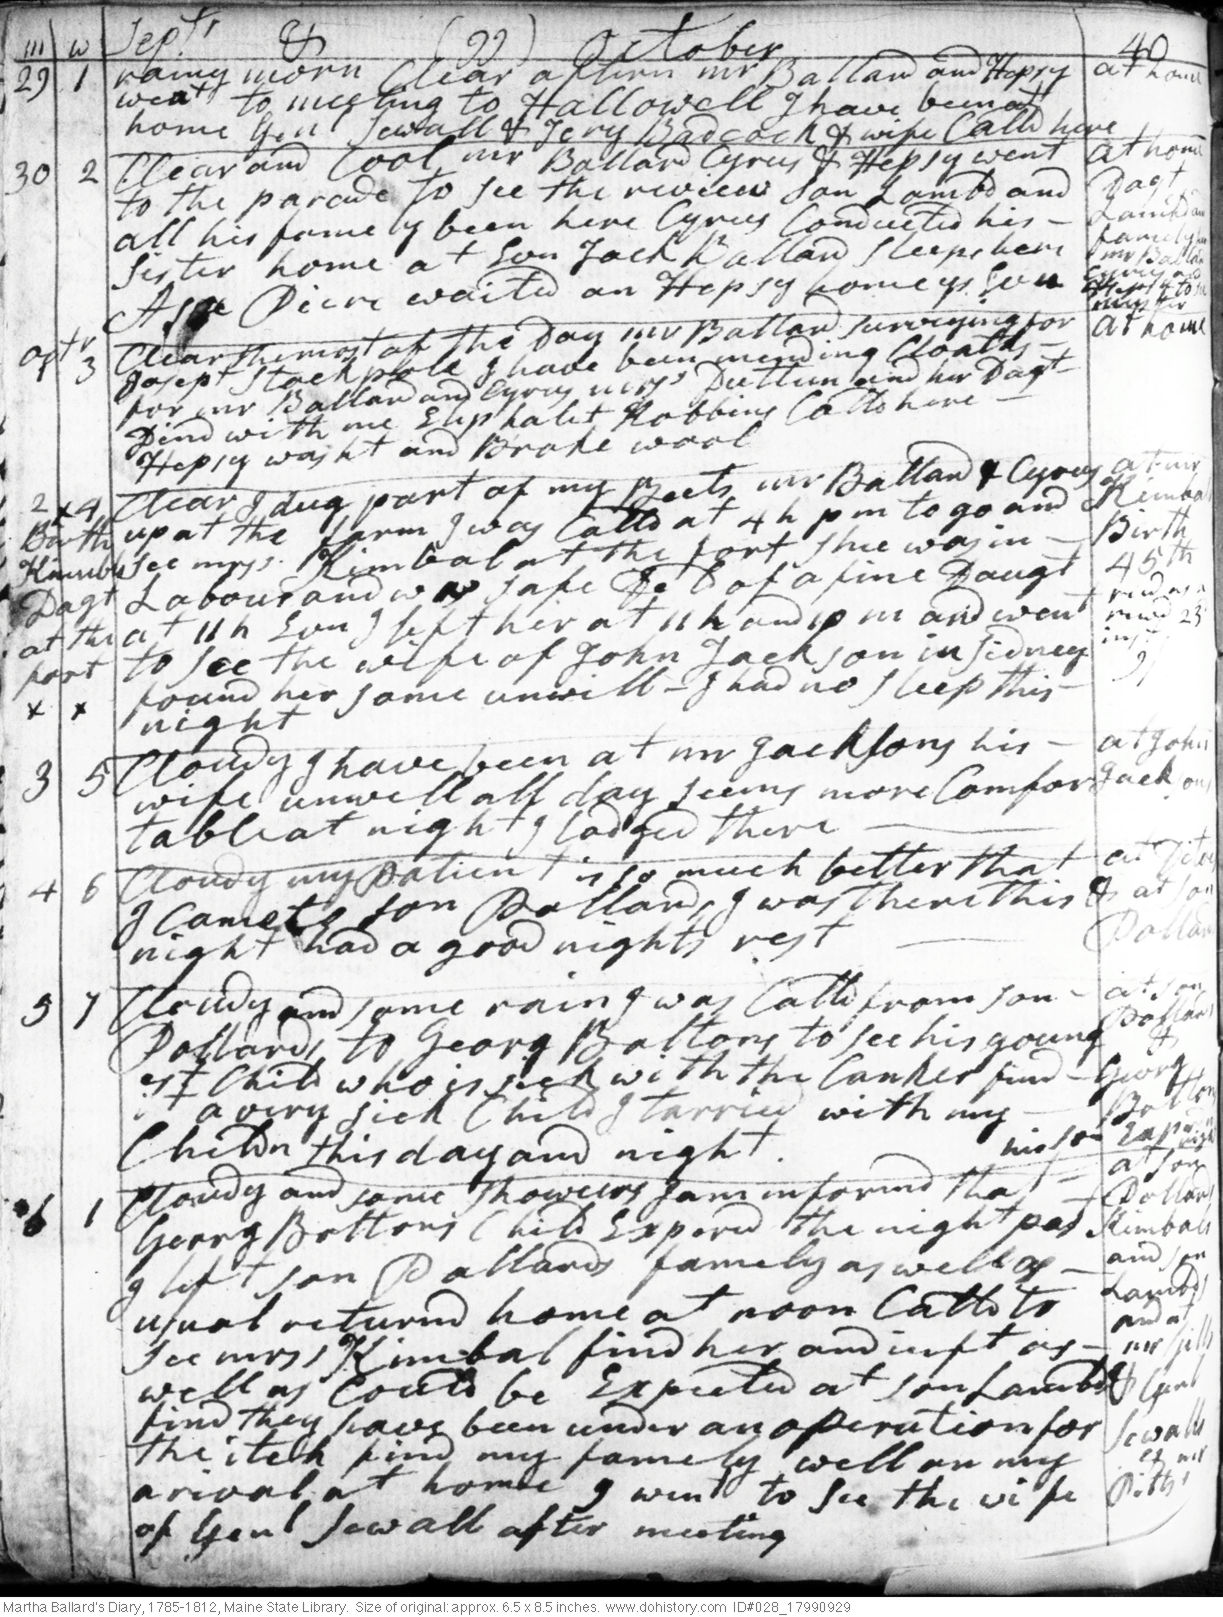 m w Sept & (99) October 40
29 1 rainy morn Clear aftern mr Ballard and Hepsy at home
went to meeting to Hallowell I have been at
home Genl Sewall & Jery Badcock & wife Calld here
30 2 Clear and Cool, mr Ballard Cyrus & Hepsy went at home
to the parade to see the review son Lambd and Dagt
all his famely been here Cyrus Conducted his - Lambd and
Sister home at Evn Jack Ballard sleeps here famely here
mr Ballard
Cyrus and
Hepsy to the
muster
Asa Piere waited on Hepsy home ys Evn
octr 3 Clear the most of the Day mr Ballard surveying for at home
Joseph Stackpole I have been mending Cloaths -
for mr Ballard and Cyrus mrss Duttun and her Dagt
Dind with me Eliphalet Robbins Calld here -
Hepsy washt and Brake wool
2 x 4 Clear I dug part of my Beets mr Ballard & Cyrus at mr
Birth up at the farm I was Calld at 4 h pm to go and Kimbals
Kimbls see mrss. Kimbal at the fort shee was in - Birth
Dagt Labour and was safe Dld of a fine Daugt 45th
at the at 11 h Evn I left her at 11 h and pm and went
fort to see the wife of John Jackson in Sidney
x x found her some unwell - I had no sleep this -
night
3 5 Cloudy I have been at mr Jacksons his - at John
wife unwell all day seems more Comfor Jacksons
table at night I lodged there -
4 6 Cloudy my Patient is so much better that
I Came to son Pollards, I was there this & at son
night had a good nights rest - Pollards
5 7 Cloudy and some rain I was Calld from son - at son
Pollards, to Georg Boltons to see his young Pollards
est Child who is sick with the Canker find - &
it a very sick Child I tarried with my - Georg
Boltons
Childn this day and night. his son Expird
night
6 1 Cloudy and some showers I am informd that - at son
Georg Boltons Child Expired the night past Pollards
I left son Pollards famely as well as - Kimbals
usual returnd home at noon Calld to and son
Lambds
see mrss Kimbal find her and inft as - and at
well as Could be Expected at son Lambds mr Gills
find they have been under an operation for & Genl
the itch find my famely well on my Sewalls
arival at home I went to see the wife & mr
of Genl Sewall after meeting Pitts
Martha Ballard's Diary, 1785-1812, Maine State Library. Size of original: approx. 6.5 x 8.5 inches. www.dohistory.com ID#028_17990929